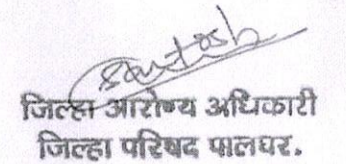 santosh
जिल्हा आरोग्य अधिकारी
जिल्हा परिषद पालघर.